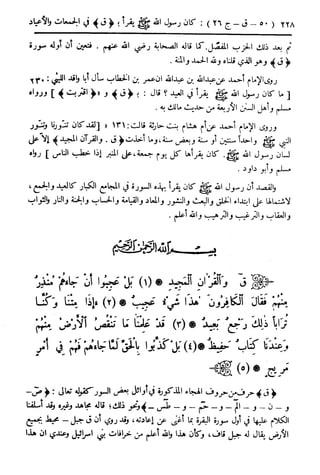 ٢٢٨ (٥٠ – ق – ج ٢٦): كان رسول الله ﷺ يقرأ بـ ﴿ق﴾ في الجمعات والأعياد
ثم بعد ذلك الحزب المفصل. كما قاله الصحابة رضي الله عنهم. فتعين أن أوله سورة
﴿ق﴾ وهو الذي قلناه ولله الحمد والمنة.
روى الإمام أحمد عن عبدالله بن عبدالله ان عمر بن الخطاب سأل أبا واقد الليثي: ٢٣٠
[ ما كان رسول الله ﷺ يقرأ في العيد ؟ قال : بـ ﴿ق﴾ و ﴿اقتربت﴾ ] ورواه
مسلم وأهل السنن الأربعة من حديث مالك به .
وروى الإمام أحمد عن أم هشام بنت حارثة قالت : ١٣١ [ لقد كان تنورنا وتنور
النبي ﷺ واحداً سنتين أو سنة وبعض سنة، وما أخذت ﴿ق. والقرآن المجيد﴾ إلا على
لسان رسول الله ﷺ . كان يقرأها كل يوم جمعة، على المنبر إذا خطب الناس ] رواه
مسلم وأبو داود .
والقصد أن رسول الله ﷺ كان يقرأ بهذه السورة في المجامع الكبار كالعيد والجمع،
لاشتمالها على ابتداء الخلق والبعث والنشور والمعاد والقيامة والحساب والجنة والنار والثواب
والعقاب والترغيب والترهيب والله أعلم .
بسم الله الرحمن الرحيم
ق وَالْقُرْآنِ الْمَجِيدِ * (١) بَلْ عَجِبُوا أَنْ جَاءَهُمْ مُنْذِرٌ
مِنْهُمْ فَقَالَ الْكَافِرُونَ هَذَا شَيْءٌ عَجِيبٌ * (٢) ءَإِذَا مِتْنَا وَكُنَّا
تُرَابًا ذَلِكَ رَجْعٌ بَعِيدٌ * (٣) قَدْ عَلِمْنَا مَا تَنْقُصُ الْأَرْضُ مِنْهُمْ
وَعِنْدَنَا كِتَابٌ حَفِيظٌ * (٤) بَلْ كَذَّبُوا بِالْحَقِّ لَمَّا جَاءَهُمْ فَهُمْ فِي أَمْرٍ
مَرِيجٍ * (٥)
﴿ق﴾ حرف من حروف الهجاء المذكورة في أوائل بعض السور كقوله تعالى : ﴿ص –
و – ن – و – الم – و – حم – و – طس –﴾ ونحو ذلك؛ قاله مجاهد وغيره وقد أسلفنا
الكلام عليها في أول سورة البقرة بما أغنى عن إعادته، وقد روي أن ق جبل – محيط بجميع
الأرض يقال له جبل قاف، وكأن هذا والله أعلم من خرافات بني اسرائيل وعندي ان هذا